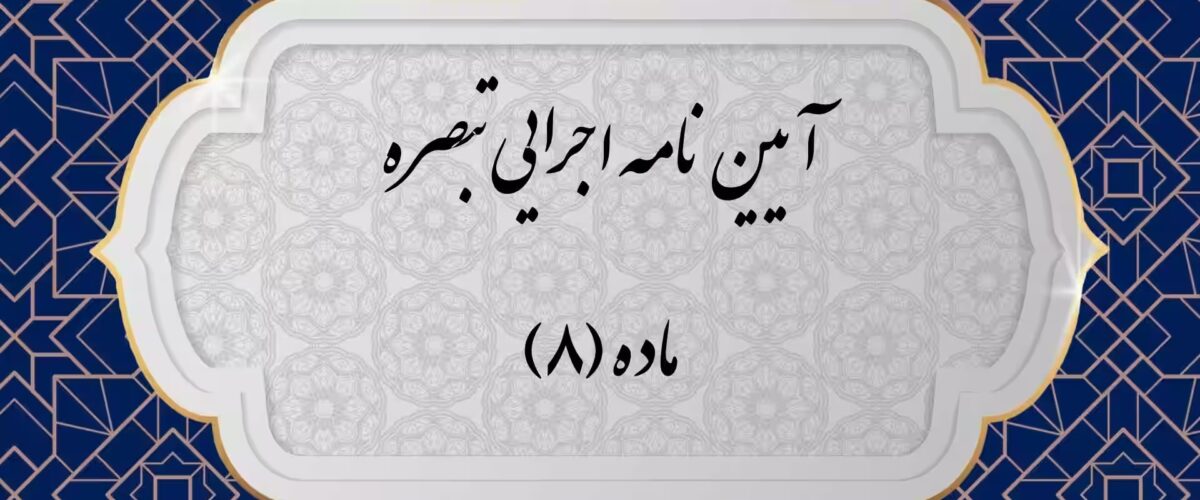 آیین نامه اجرایی تبصره
ماده (۸)